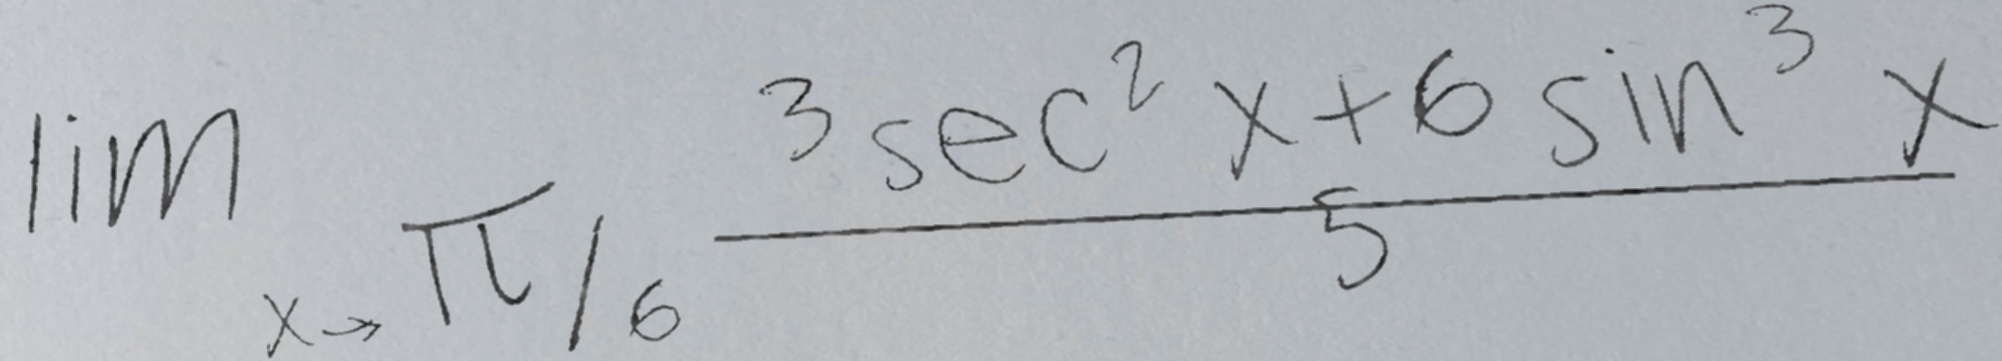 lim x→π/6 (3sec²x+6sin³x)/5